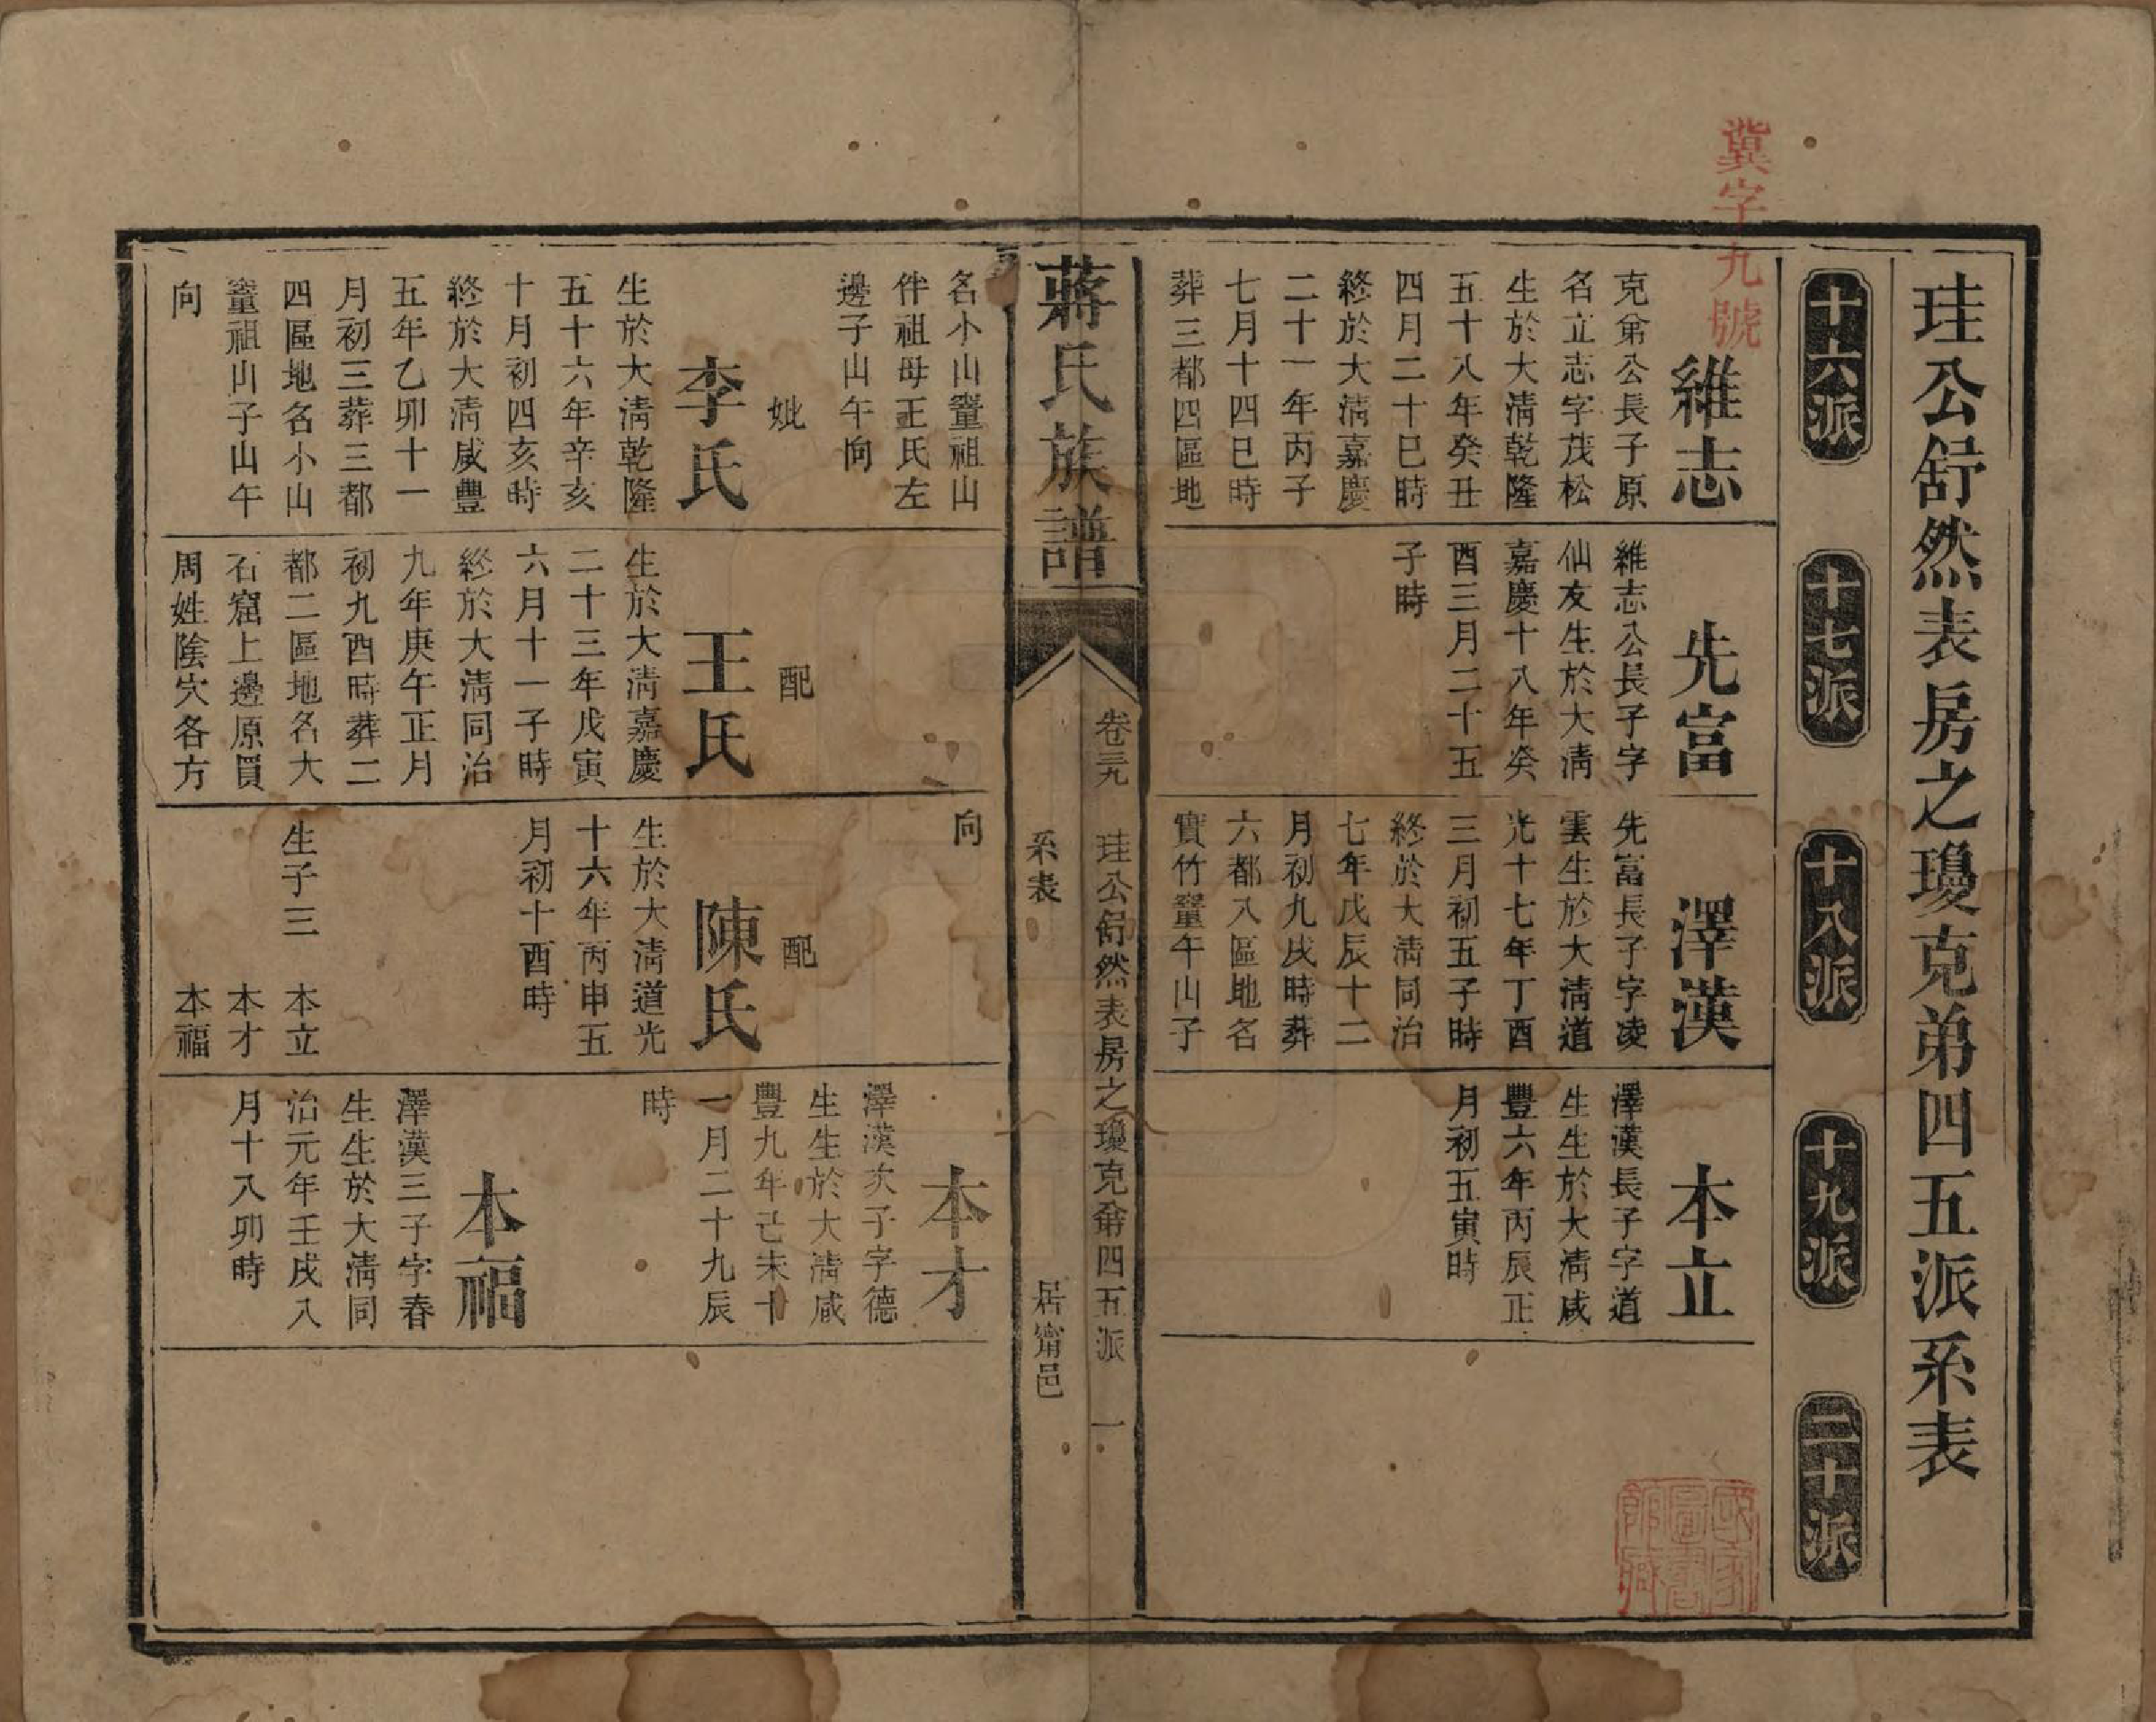 冀字九號
珪公舒然表房之瓊克弟四五派系表
十六派
十七派
十八派
十九派
二十派
維志
克甫公長子原
名立志字茂松
生於大淸乾隆
五十八年癸丑
四月二十巳時
終於大淸嘉慶
二十一年丙子
七月十四巳時
葬三都四區地
名小山窰祖山
伴祖母王氏左
邊子山午向
妣
李氏
生於大淸乾隆
五十六年辛亥
十月初四亥時
終於大淸咸豐
五年乙卯十一
月初三葬三都
四區地名小山
窰祖山子山午
向
先富
維志公長子字
仙友生於大淸
嘉慶十八年癸
酉三月二十五
子時
配
王氏
生於大淸嘉慶
二十三年戊寅
六月十一子時
終於大淸同治
九年庚午正月
初九酉時葬二
都二區地名大
石窟上邊原買
周姓陰穴各方
澤漢
先富長子字凌
雲生於大淸道
光十七年丁酉
三月初五子時
終於大淸同治
七年戊辰十二
月初九戌時葬
六都八區地名
寶竹窰午山子
向
配
陳氏
生於大淸道光
十六年丙申五
月初十酉時
生子三 本立
本才
本福
本立
澤漢長子字道
生生於大淸咸
豐六年丙辰正
月初五寅時
本才
澤漢次子字德
生生於大淸咸
豐九年己未十
一月二十九辰
時
本福
澤漢三子字春
生生於大淸同
治元年壬戌八
月十八卯時
蔣氏族譜
卷三九 珪公舒然表房之瓊克甫四五派 一
系表 居甯邑
國家
圖書
館藏